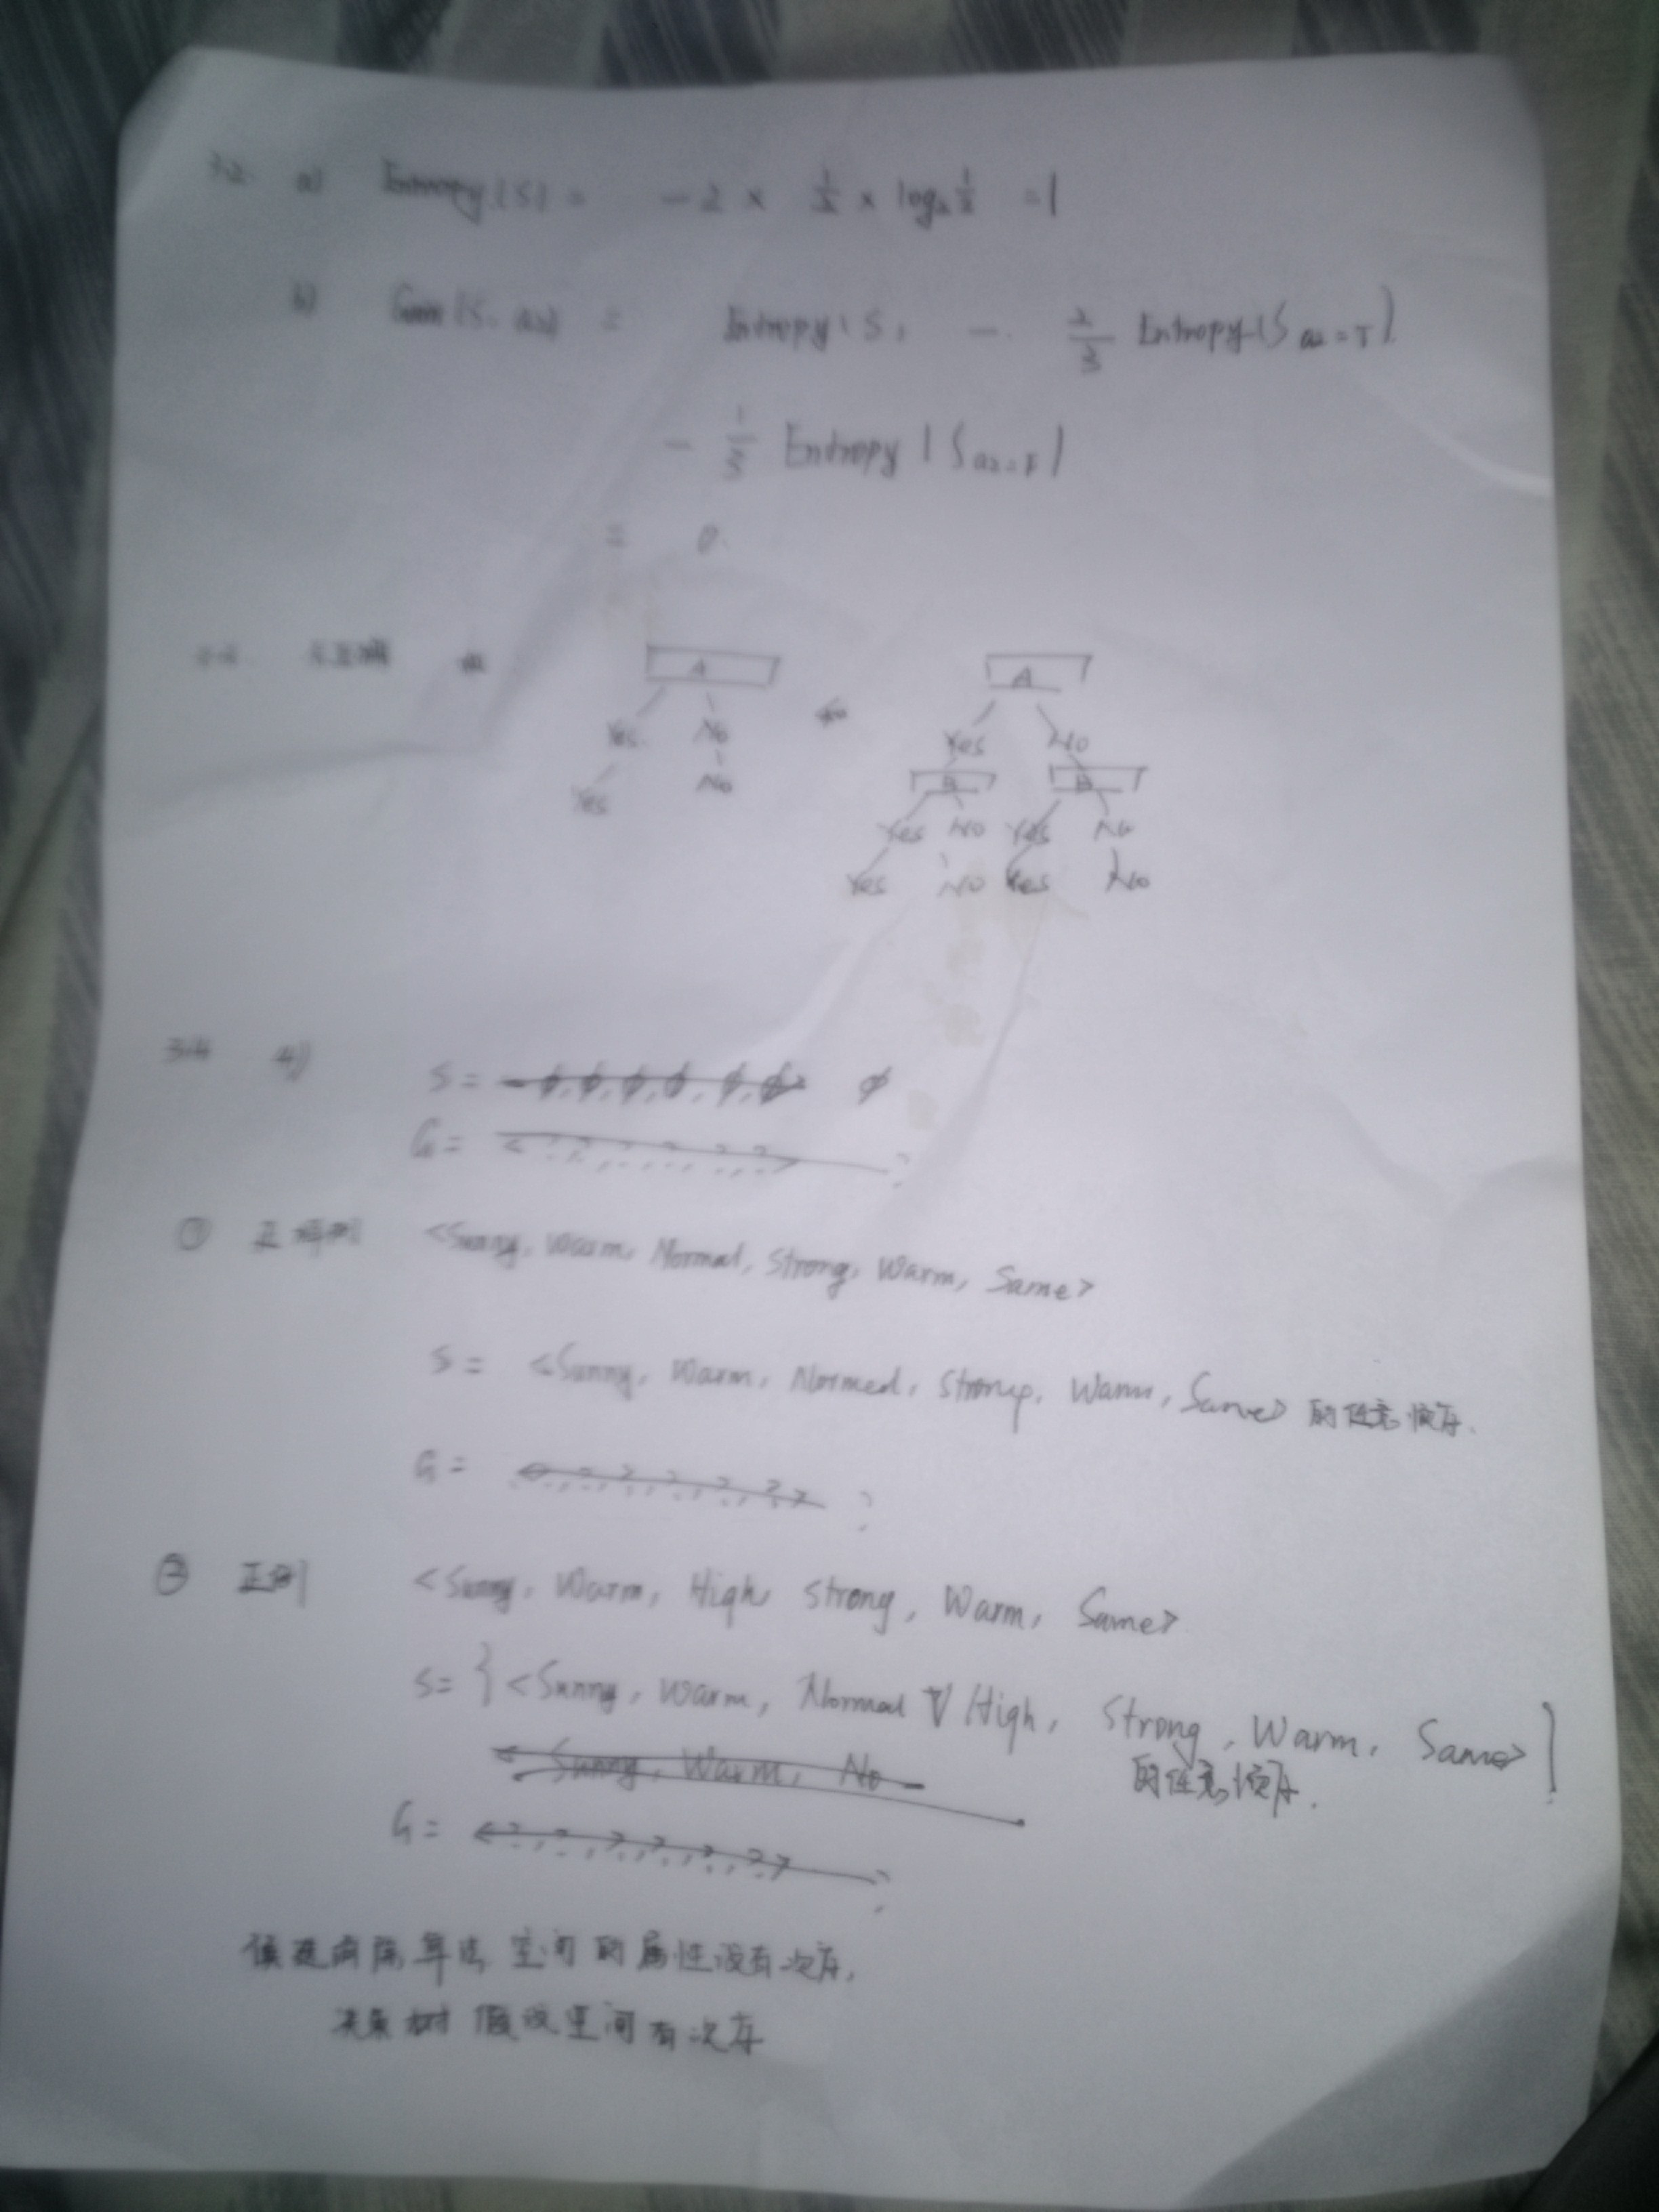 3.2. a) Entropy(S) = -2 × 1/2 × log₂ 1/2 = 1
b) Gain(S, a2) = Entropy(S) - 2/3 Entropy(S a2=T)
- 1/3 Entropy(S a2=F)
= 0.
不正确 如
A
A
Yes. No
Yes No
Yes No
B B
Yes No Yes No
Yes No Yes No
3.4 4) S = ϕ
G = ?
① 正样例 <Sunny, Warm, Normal, Strong, Warm, Same>
S = <Sunny, Warm, Normal, Strong, Warm, Same> 的任意顺序.
G = ?
② 正例 <Sunny, Warm, High, Strong, Warm, Same>
S = { <Sunny, Warm, Normal ∨ High, Strong, Warm, Same> }
的任意顺序.
Sunny, Warm, No
G = ?
候选消除算法 空间的属性没有次序,
决策树 假设空间有次序